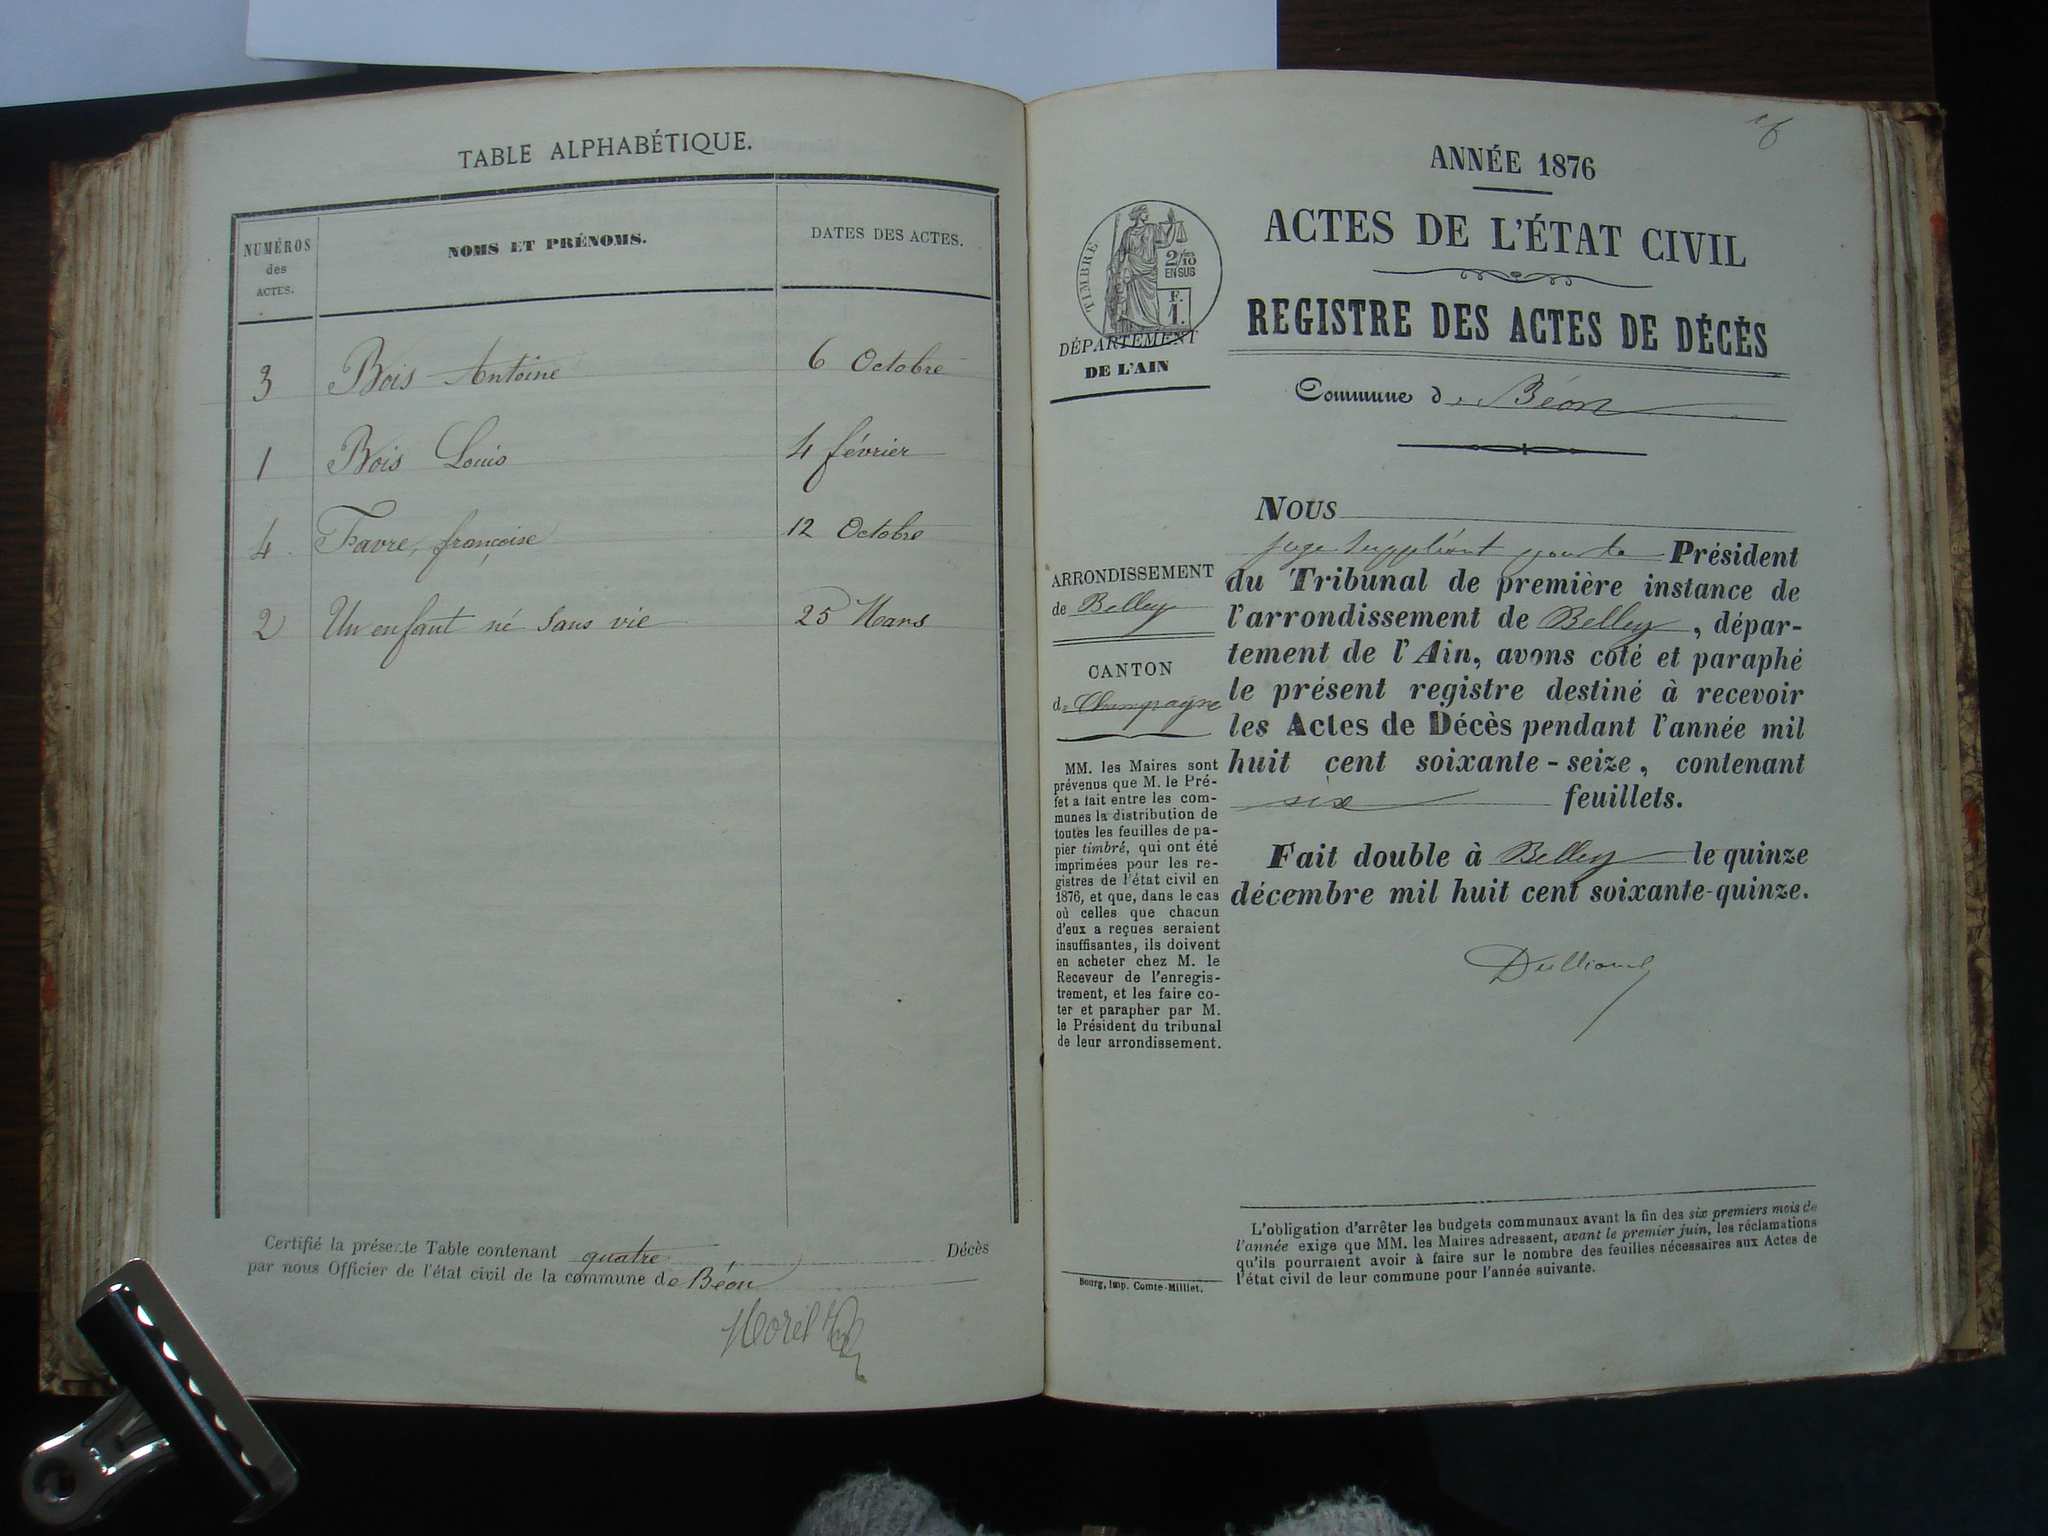 TABLE ALPHABÉTIQUE.
NUMÉROS des ACTES. NOMS ET PRÉNOMS. DATES DES ACTES.
3 Bois Antoine 6 Octobre
1 Bois Louis 4 février
4 Favre, françoise 12 Octobre
2 Un enfant né sans vie 25 Mars
Certifié la présente Table contenant quatre Décès
par nous Officier de l'état civil de la commune de Béon
Morel
ANNÉE 1876
ACTES DE L'ÉTAT CIVIL
REGISTRE DES ACTES DE DÉCÈS
Commune de Béon
TIMBRE
2/10 EN SUS
F. 1.
DÉPARTEMENT
DE L'AIN
ARRONDISSEMENT
de Belley
CANTON
de Champagne
MM. les Maires sont
prévenus que M. le Pré-
fet a fait entre les com-
munes la distribution de
toutes les feuilles de pa-
pier timbré, qui ont été
imprimées pour les re-
gistres de l'état civil en
1876, et que, dans le cas
où celles que chacun
d'eux a reçues seraient
insuffisantes, ils doivent
en acheter chez M. le
Receveur de l'enregis-
trement, et les faire co-
ter et parapher par M.
le Président du tribunal
de leur arrondissement.
NOUS
juge suppléant pour le Président
du Tribunal de première instance de
l'arrondissement de Belley, dépar-
tement de l'Ain, avons coté et paraphé
le présent registre destiné à recevoir
les Actes de Décès pendant l'année mil
huit cent soixante-seize, contenant
six feuillets.
Fait double à Belley le quinze
décembre mil huit cent soixante-quinze.
L'obligation d'arrêter les budgets communaux avant la fin des six premiers mois de
l'année exige que MM. les Maires adressent, avant le premier juin, les réclamations
qu'ils pourraient avoir à faire sur le nombre des feuilles nécessaires aux Actes de
l'état civil de leur commune pour l'année suivante.
Bourg, Imp. Comte-Milliet.